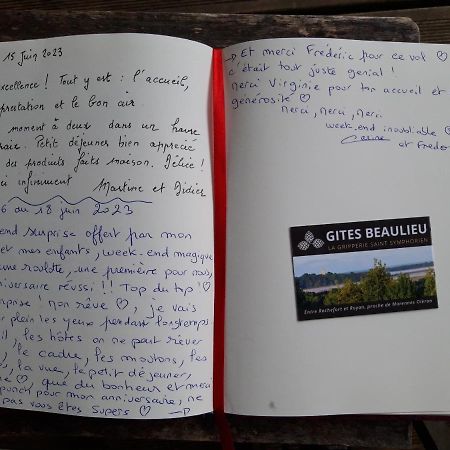 15 juin 2023
excellence ! Tout y est : l'accueil,
prestation et le bon air
moment à deux dans un havre
Petit déjeuner bien apprécié
de produits faits maison. Délice !
infiniment Martine et Didier
6 au 18 juin 2023
end surprise offert par mon
et mes enfants, week-end magique
une roulotte, une première pour nous,
niversaire réussi !! Top du top ! ♡
prise ! mon rêve ♡, je vais
plein les yeux pendant longtemps.
les hôtes on ne peut rêver
le cadre, les moutons, les
la vue, le petit déjeuner,
♡, que du bonheur et merci
punch pour mon anniversaire, ne
pas vous êtes supers ♡ →
→ Et merci Frédéric pour ce vol ♡
c'était tout juste genial !
merci Virginie pour ton accueil et
générosité ♡
merci, merci, merci
week-end inoubliable ♡
et Frede
GITES BEAULIEU
LA GRIPPERIE SAINT SYMPHORIEN
Entre Rochefort et Royan, proche de Marennes Oléron